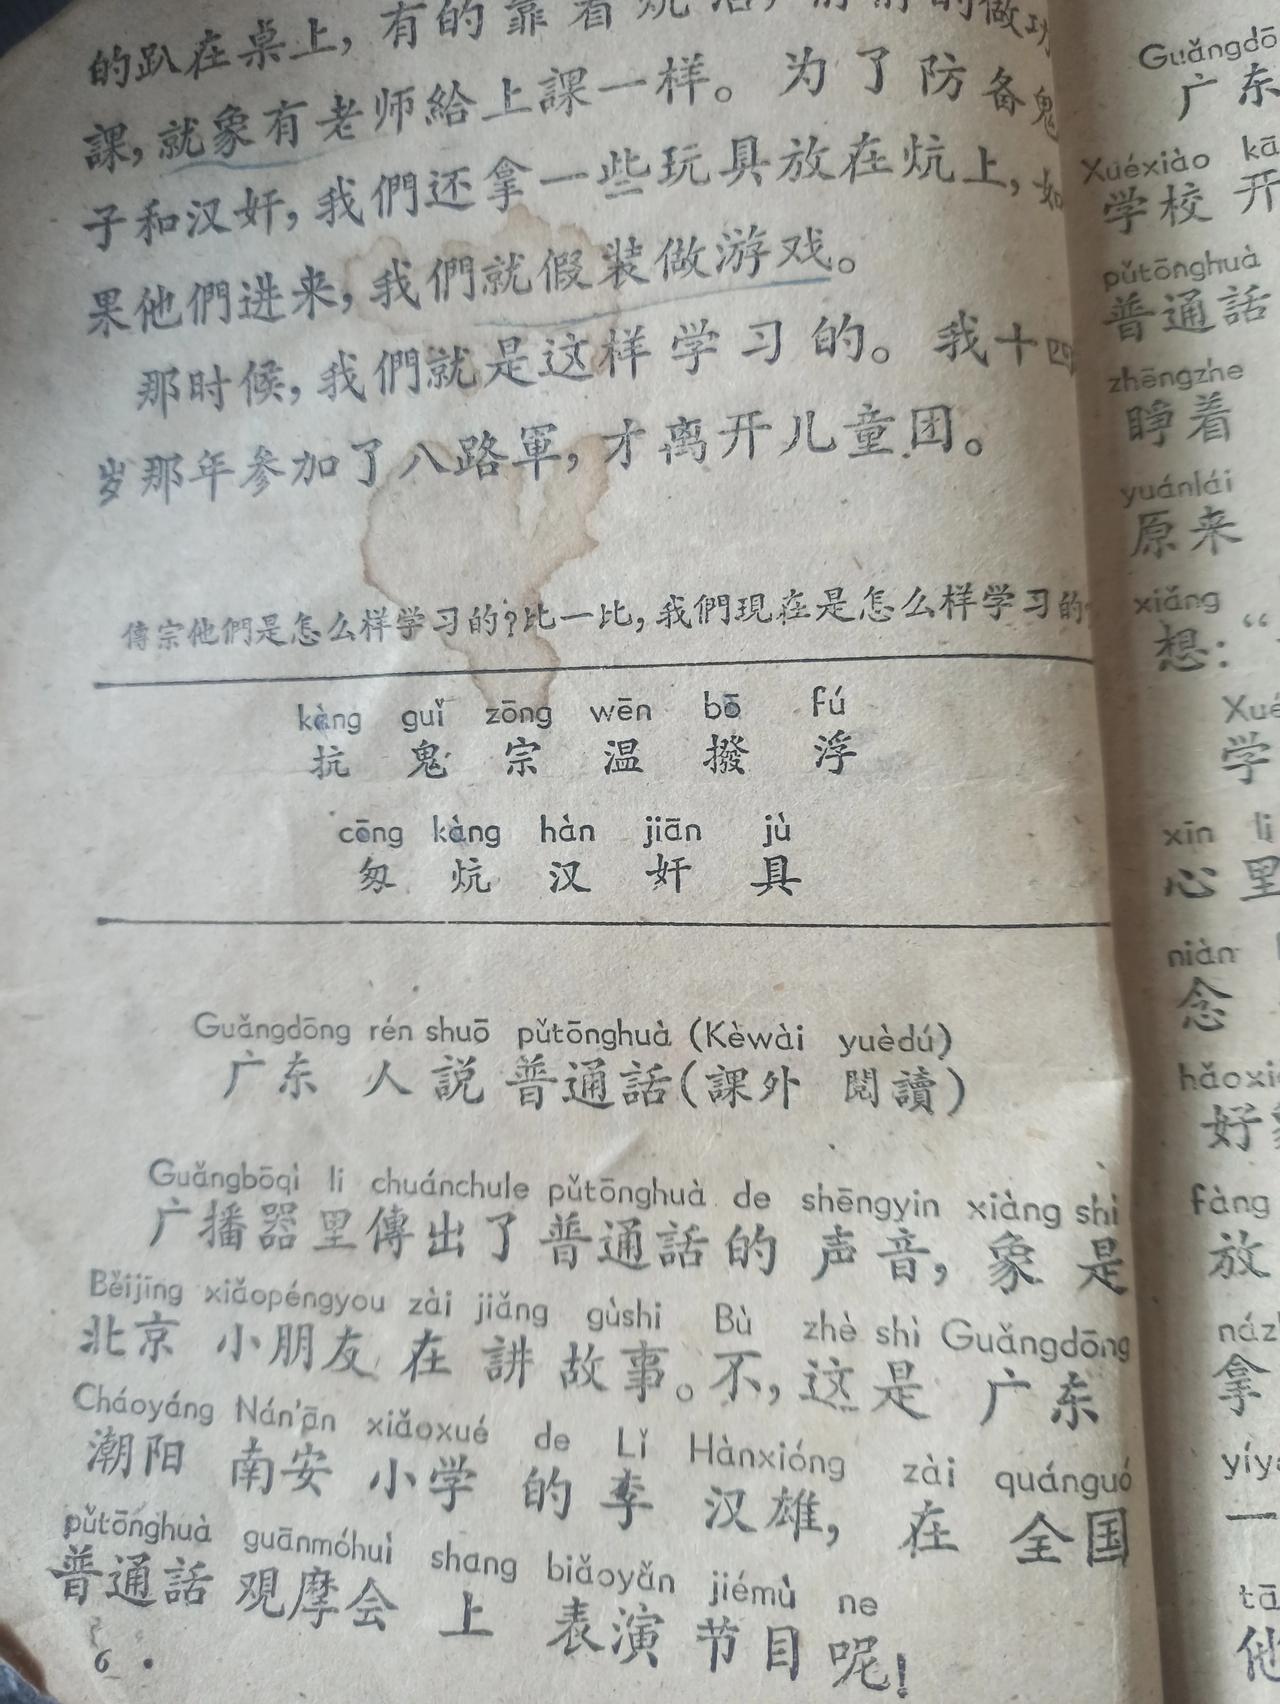 的趴在桌上，有的靠着炕沿，悄悄的做功
課，就象有老师給上課一样。为了防备鬼
子和汉奸，我們还拿一些玩具放在炕上，如
果他們进来，我們就假装做游戏。
那时候，我們就是这样学习的。我十四
岁那年参加了八路軍，才离开儿童团。
傳宗他們是怎么样学习的？比一比，我們現在是怎么样学习的
kàng guǐ zōng wēn bō fú
抗 鬼 宗 温 撥 浮
cōng kàng hàn jiān jù
匆 炕 汉 奸 具
Guǎngdōng rén shuō pǔtōnghuà (Kèwài yuèdú)
广东 人 説 普通話（課外 閱讀）
Guǎngbōqì li chuánchule pǔtōnghuà de shēngyin xiàng shì
广播器里傳出了普通話的 声音，象 是
Běijīng xiǎopéngyou zài jiǎng gùshi Bù zhè shì Guǎngdōng
北京 小朋友 在 講 故事。不，这是 广东
Cháoyáng Nán'ān xiǎoxué de Lǐ Hànxióng zài quánguó
潮阳 南安 小学 的 李 汉雄， 在 全国
pǔtōnghuà guānmóhuì shang biǎoyǎn jiémù ne
普通話 观摩会 上 表演 节目 呢！
6
Guǎngdō
广东
Xuéxiào kā
学校 开
pǔtōnghuà
普通話
zhēngzhe
睁着
yuánlái
原来
xiǎng
想：“
Xué
学
xīn li
心里
niàn
念
hǎoxi
好象
fàng
放
názh
拿
yíy
一
tā
他